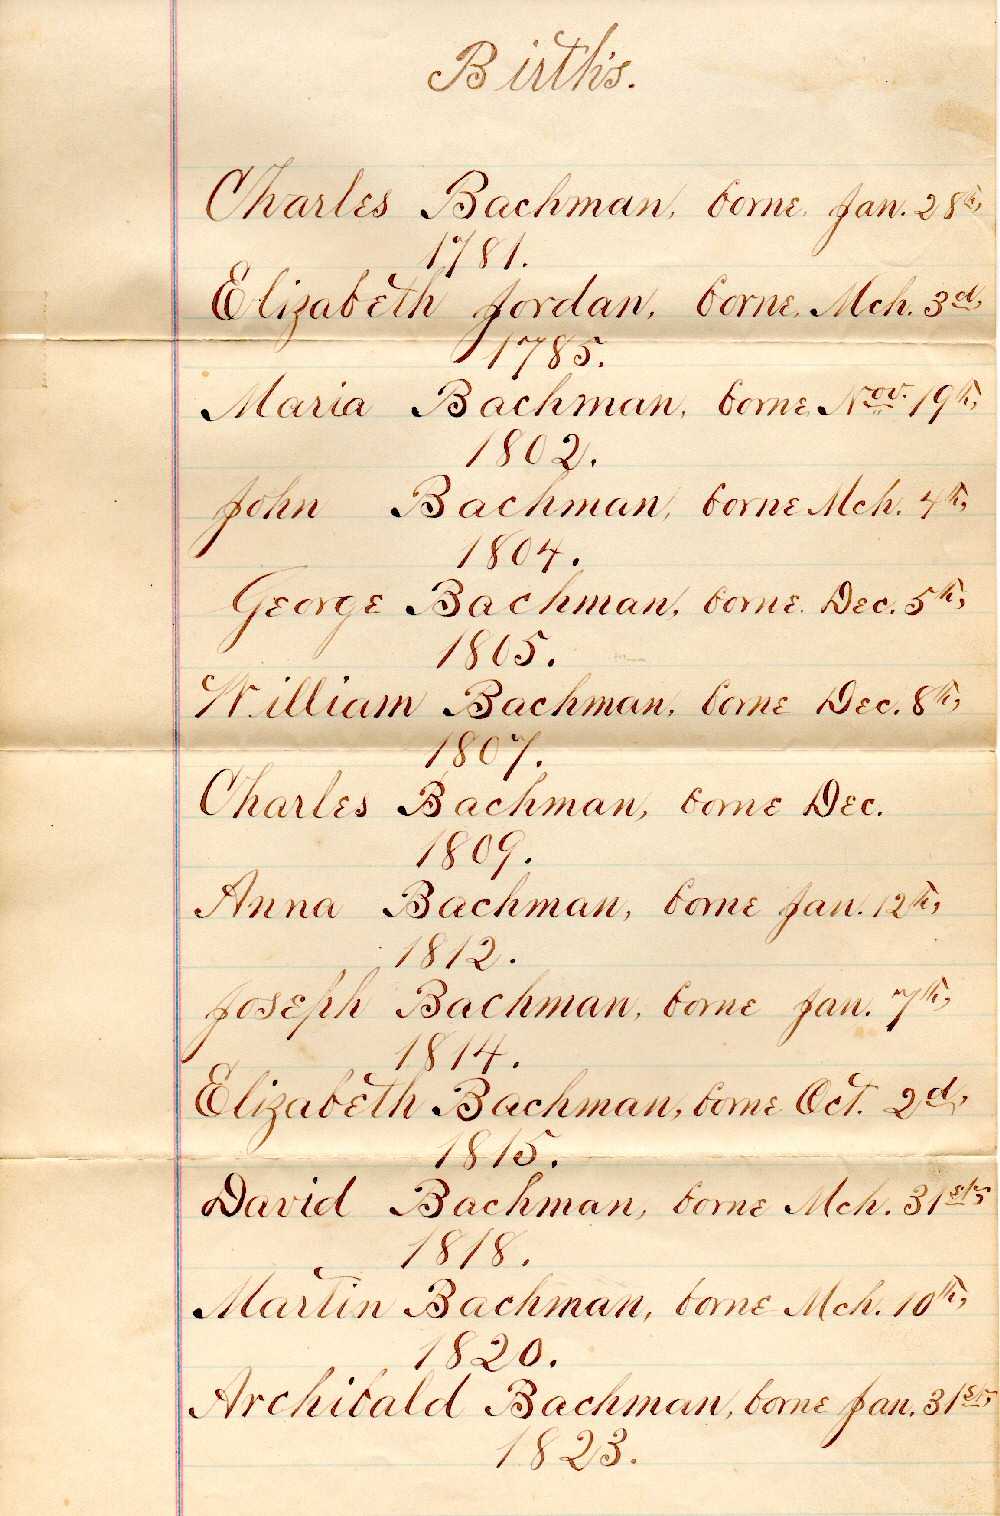 Births.
Charles Bachman, borne. Jan. 28th,
1781.
Elizabeth Jordan, borne. Mch. 3d,
1785.
Maria Bachman, borne, Nov. 19th,
1802.
John Bachman, borne Mch. 4th,
1804.
George Bachman, borne. Dec. 5th,
1805.
William Bachman, borne Dec. 8th,
1807.
Charles Bachman, borne Dec.
1809.
Anna Bachman, borne Jan. 12th,
1812.
Joseph Bachman, borne Jan. 7th,
1814.
Elizabeth Bachman, borne Oct. 2d,
1815.
David Bachman, borne Mch. 31st,
1818.
Martin Bachman, borne Mch. 10th,
1820.
Archibald Bachman, borne Jan. 31st,
1823.